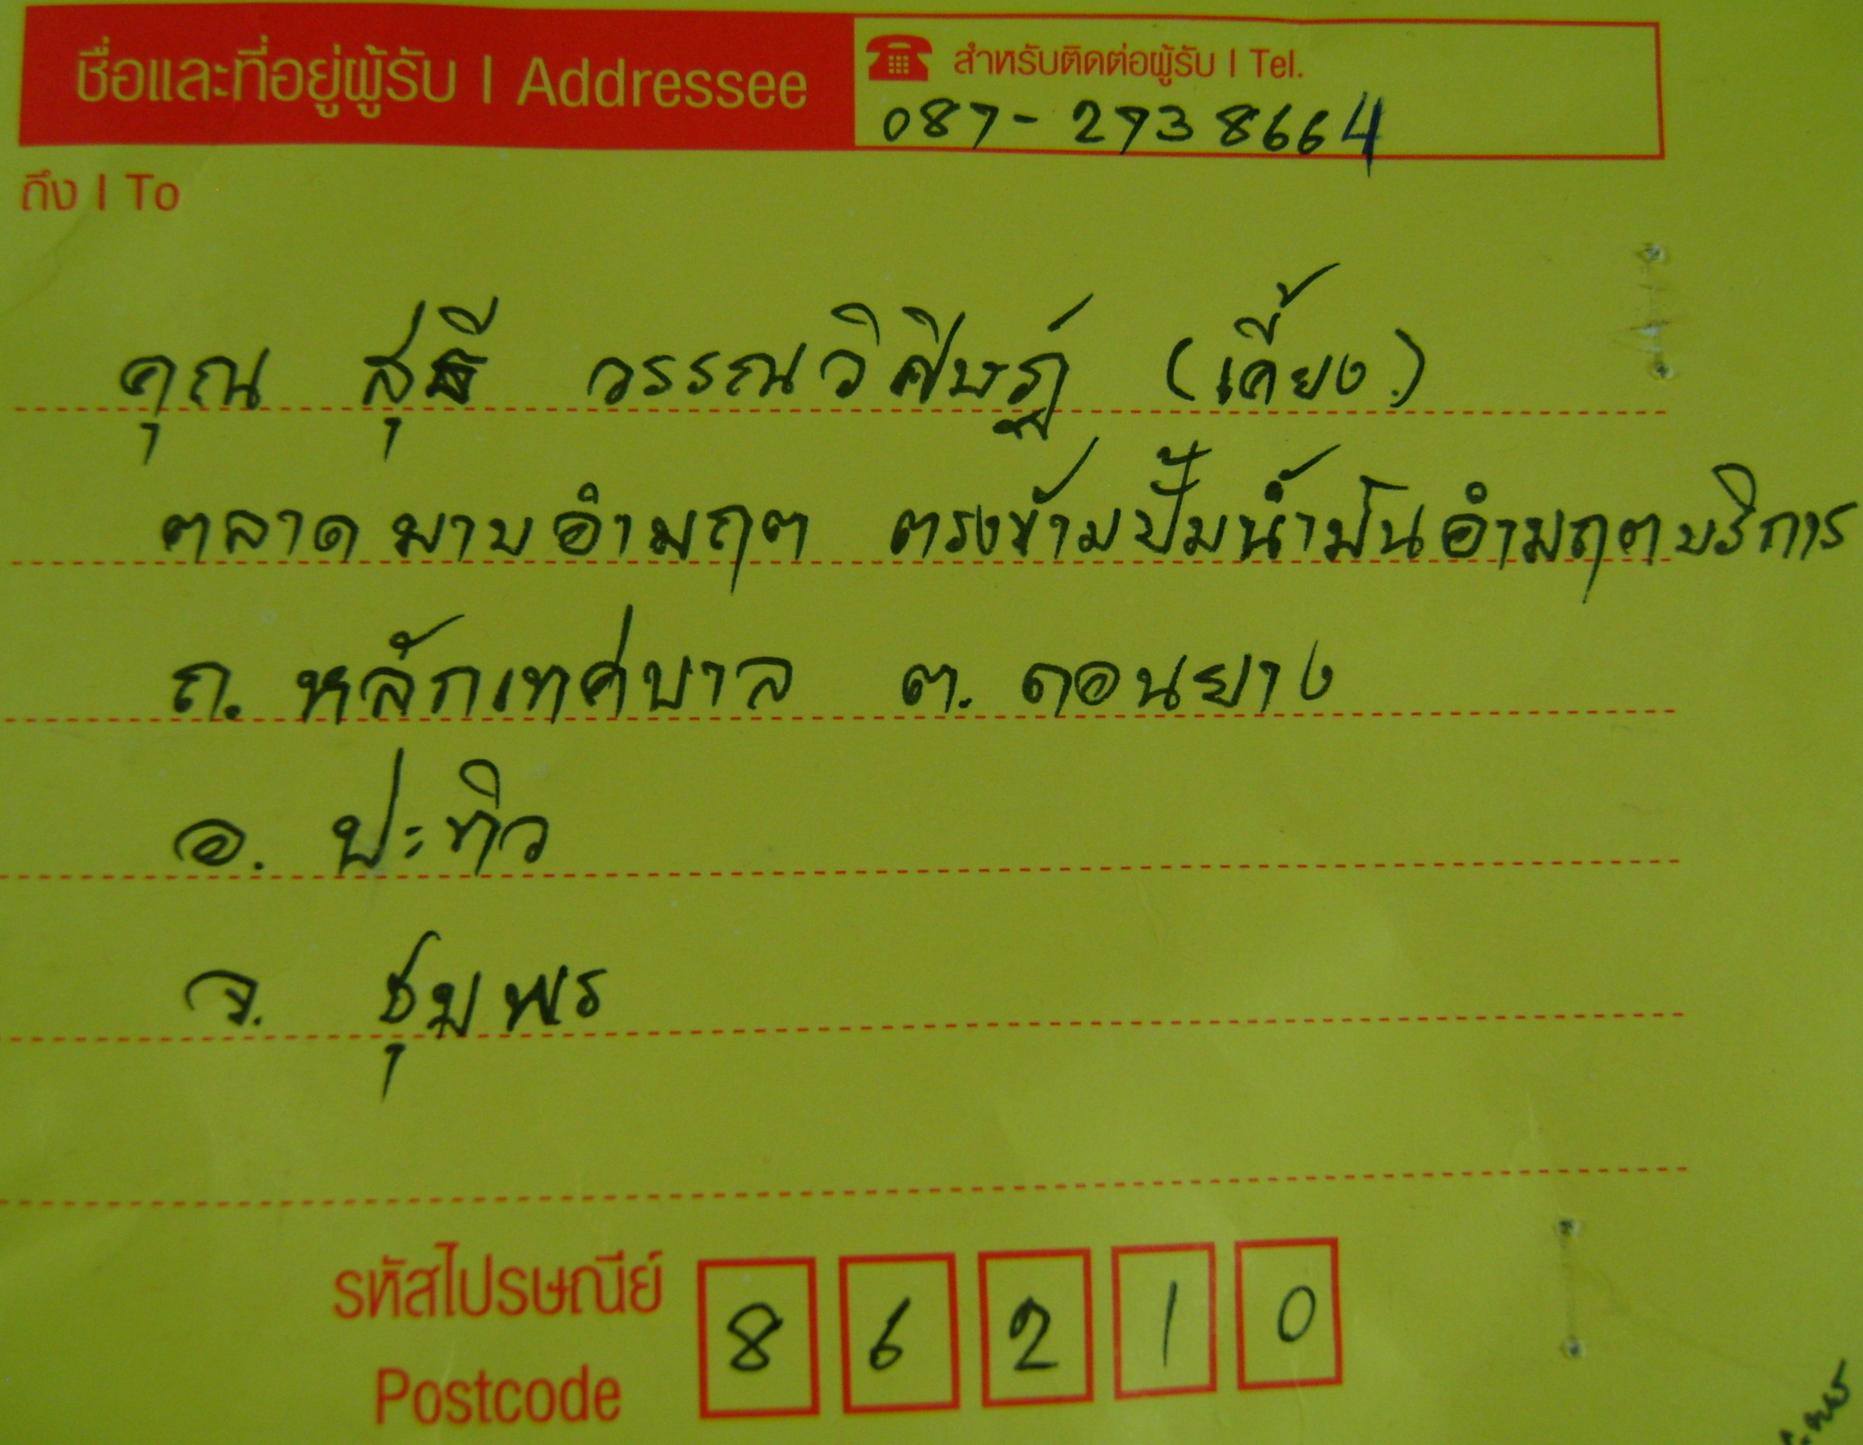 ชื่อและที่อยู่ผู้รับ | Addressee
สำหรับติดต่อผู้รับ | Tel.
087-2738664
ถึง | To
คุณ สุธี วรรณวิศิษฏ์ (เคี้ยง)
ตลาดมาบอำมฤต ตรงข้ามปั้มน้ำมันอำมฤตบริการ
ถ. หลักเทศบาล ต. ดอนยาง
อ. ปะทิว
จ. ชุมพร
รหัสไปรษณีย์
Postcode
86210